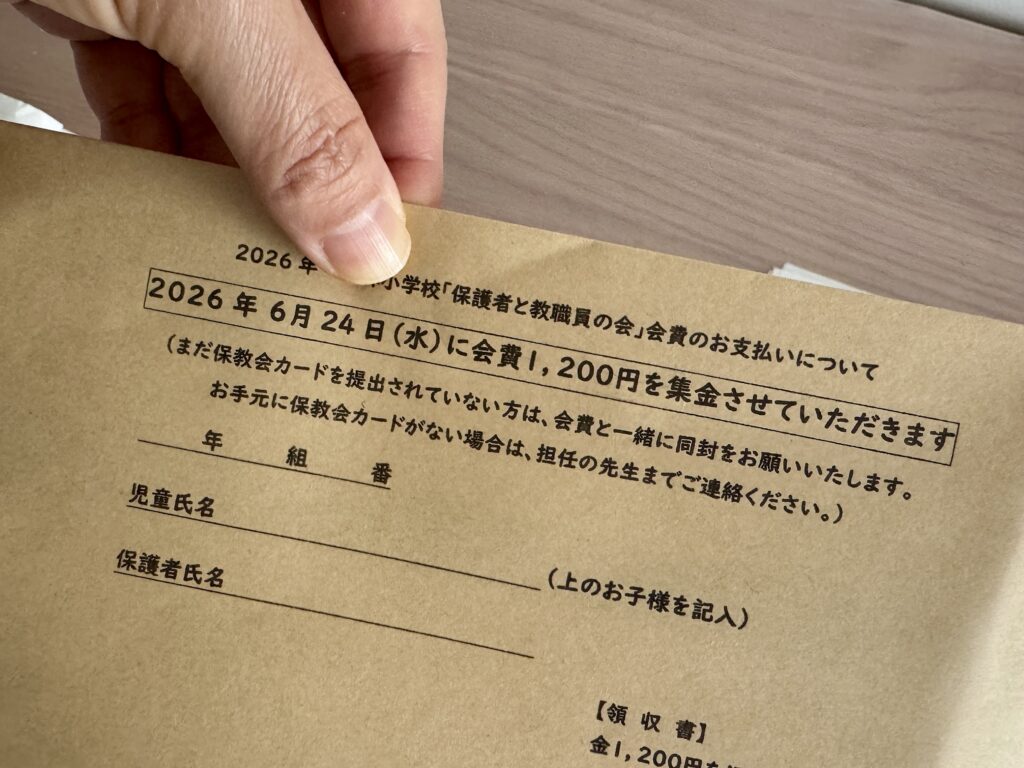 2026年 小学校「保護者と教職員の会」会費のお支払いについて
2026年 6月 24日(水)に会費1,200円を集金させていただきます
(まだ保教会カードを提出されていない方は、会費と一緒に同封をお願いいたします。
お手元に保教会カードがない場合は、担任の先生までご連絡ください。)
年 組 番
児童氏名 (上のお子様を記入)
保護者氏名
【領 収 書】
金1,200円を